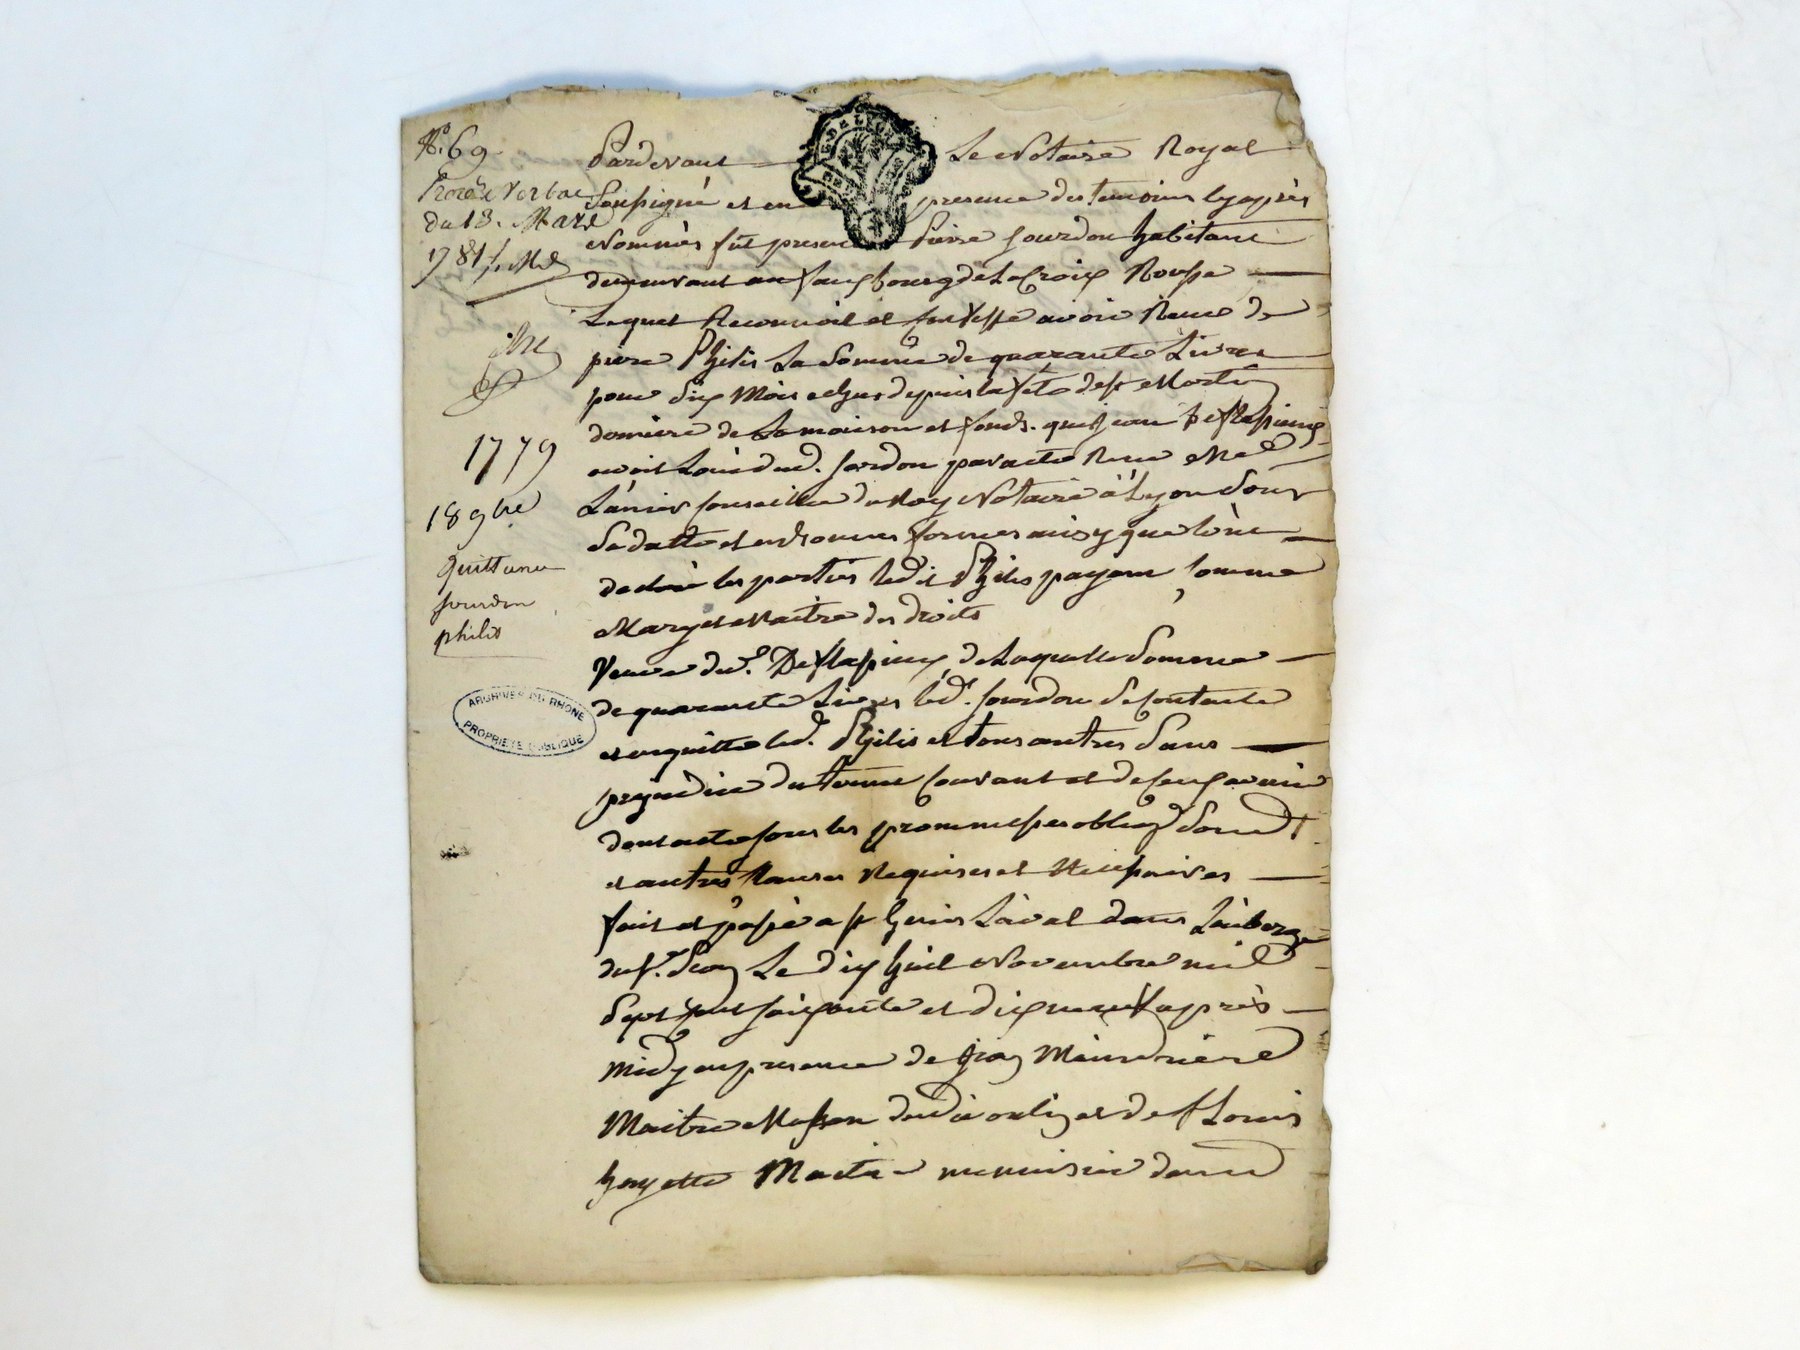 N.° 69
Procés Verbal
du 13. Mars
1781
1779
18 9bre
Quittance
jourdon
philis
ARCHIVES DU RHONE
PROPRIETE PUBLIQUE
Pardevant Le Notaire Royal
Soussigné et en presence des temoins cy après
Nommés fut present Pierre jourdon habitant
demeurant au fauxbourg de La Croix Rousse
Lequel Reconnoit et confesse avoir Receu de
pierre Philis La Somme de quarante Livres
pour Six Mois echus depuis la fete de st Martin
derniere de La maison et fonds que jean
avoit Loué dud. jordon par acte Receu Me
conseiller du Roy Notaire à Lyon Sous
Sa datte et en bonnes formes ainsy que l'ont
declaré les parties led. Philis payant comme
Mary et Maitre des droits
Veuve du d. de Laquelle Somme
de quarante Livres led. jourdon Se contente
et en quitte led. Philis et tous autres Sans
prejudice du terme Courant et de ceux a venir
dont acte sous les prommesses oblig.
et autres Clauses Requises et Necessaires
fait et passé a st Genis Laval dans L'auberge
du Sr. Le dix huit Novembre mil
Sept cent soixante et dix neuf après
midy en presence de
Maitre Masson dud. lieu et de Sr Louis
Maitre menuisier